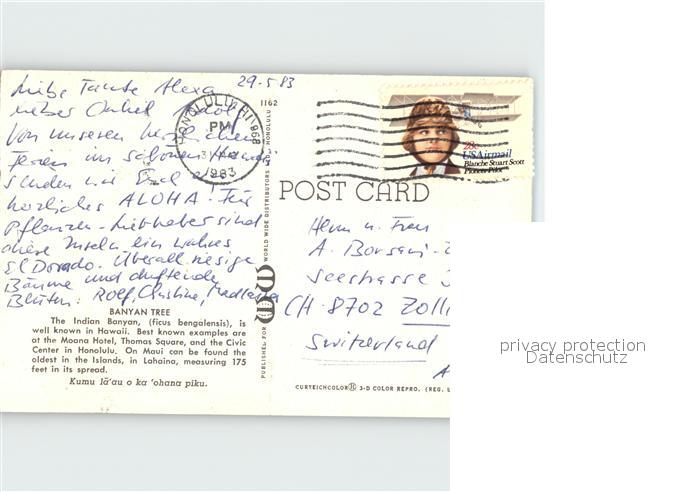 29-5.83
Liebe Tante Alexa
lieber Onkel Adolf
Von unseren herrlichen
Ferien im schönen
senden wir Euch
herzliches ALOHA! Für
Pflanzen-Liebhaber sind
diese Inseln ein wahres
El Dorado. Überall riesige
Bäume und duftende
Blüten. Rolf, Christine,
HONOLULU, HI 968
PM
1983
1162
28c
USAirmail
Blanche Stuart Scott
Pioneer Pilot
POST CARD
Herrn u. Frau
A. Borsari-
Seestrasse
CH-8702 Zolli
Switzerland
A
BANYAN TREE
The Indian Banyan, (ficus bengalensis), is
well known in Hawaii. Best known examples are
at the Moana Hotel, Thomas Square, and the Civic
Center in Honolulu. On Maui can be found the
oldest in the Islands, in Lahaina, measuring 175
feet in its spread.
Kumu lā'au o ka 'ohana piku.
PUBLISHED FOR
WORLD WIDE DISTRIBUTORS HONOLULU
CURTEICHCOLOR® 3-D COLOR REPRO. (REG. U
privacy protection
Datenschutz